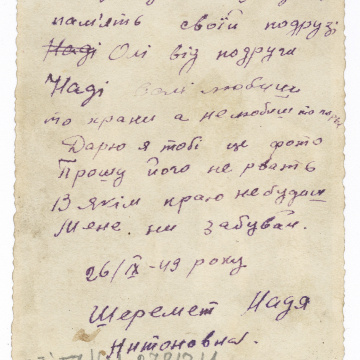 память своїй подрузі
Наді Олі від подруги
Наді Колі любиш
то храни а не любиш то порви
Дарю я тобі це фото
Прошу його не рвать
В якім краю не будиш
Мене ни забувай.
26/IX-49 року
Шеремет Надя
Антоновна.